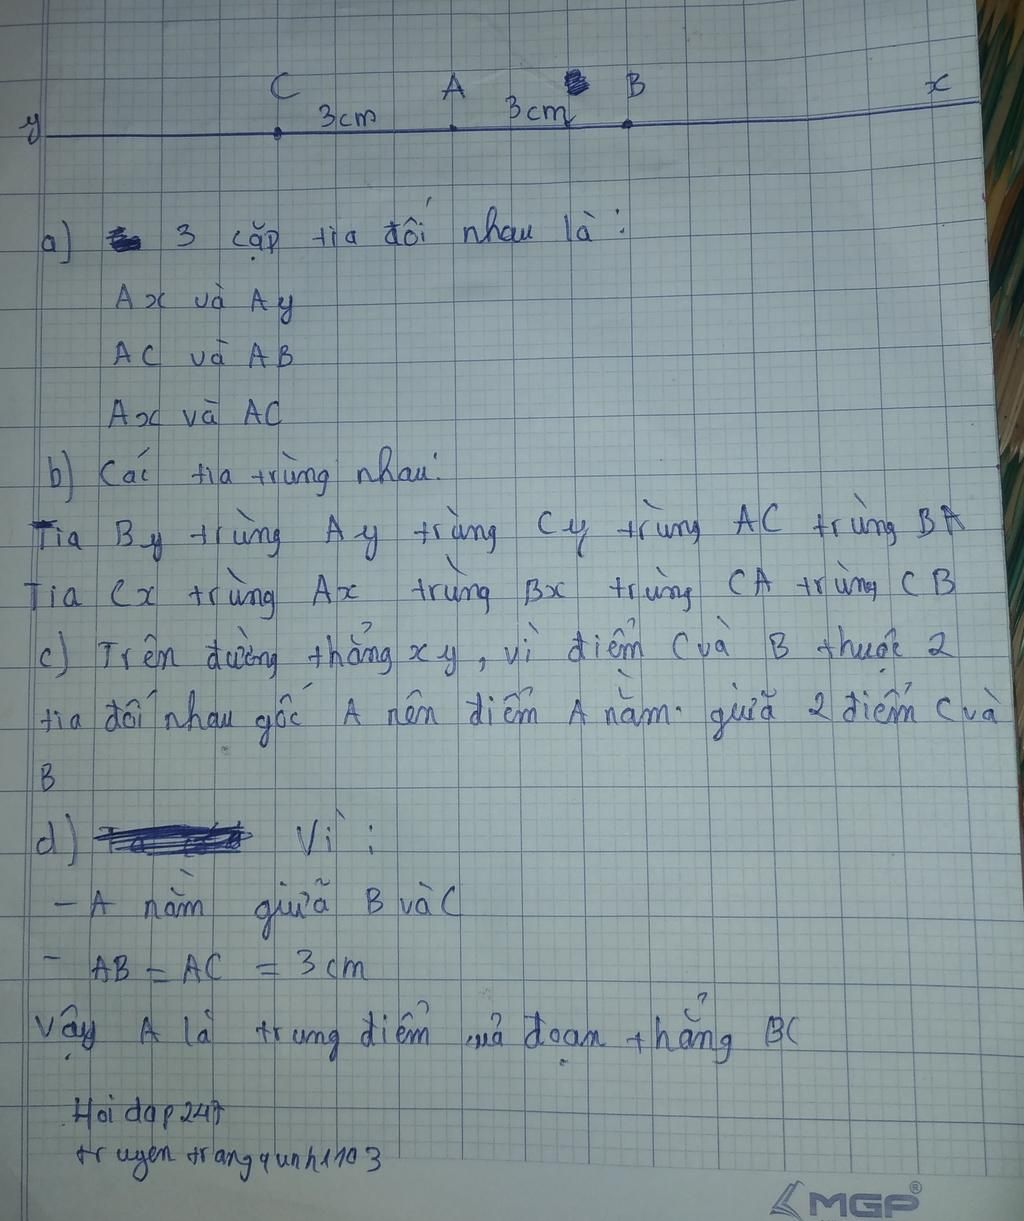 C A B x
y 3cm 3cm
a) 3 cặp tia đối nhau là:
Ax và Ay
AC và AB
Ax và AC
b) Các tia trùng nhau:
Tia By trùng Ay trùng Cy trùng AC trùng BA
Tia Cx trùng Ax trùng Bx trùng CA trùng CB
c) Trên đường thẳng xy, vì điểm C và B thuộc 2
tia đối nhau gốc A nên điểm A nằm giữa 2 điểm C và
B
d) Vì:
- A nằm giữa B và C
- AB = AC = 3cm
Vậy A là trung điểm của đoạn thẳng BC
Hoi dap 247
truyen trangqunh1103
MGP®